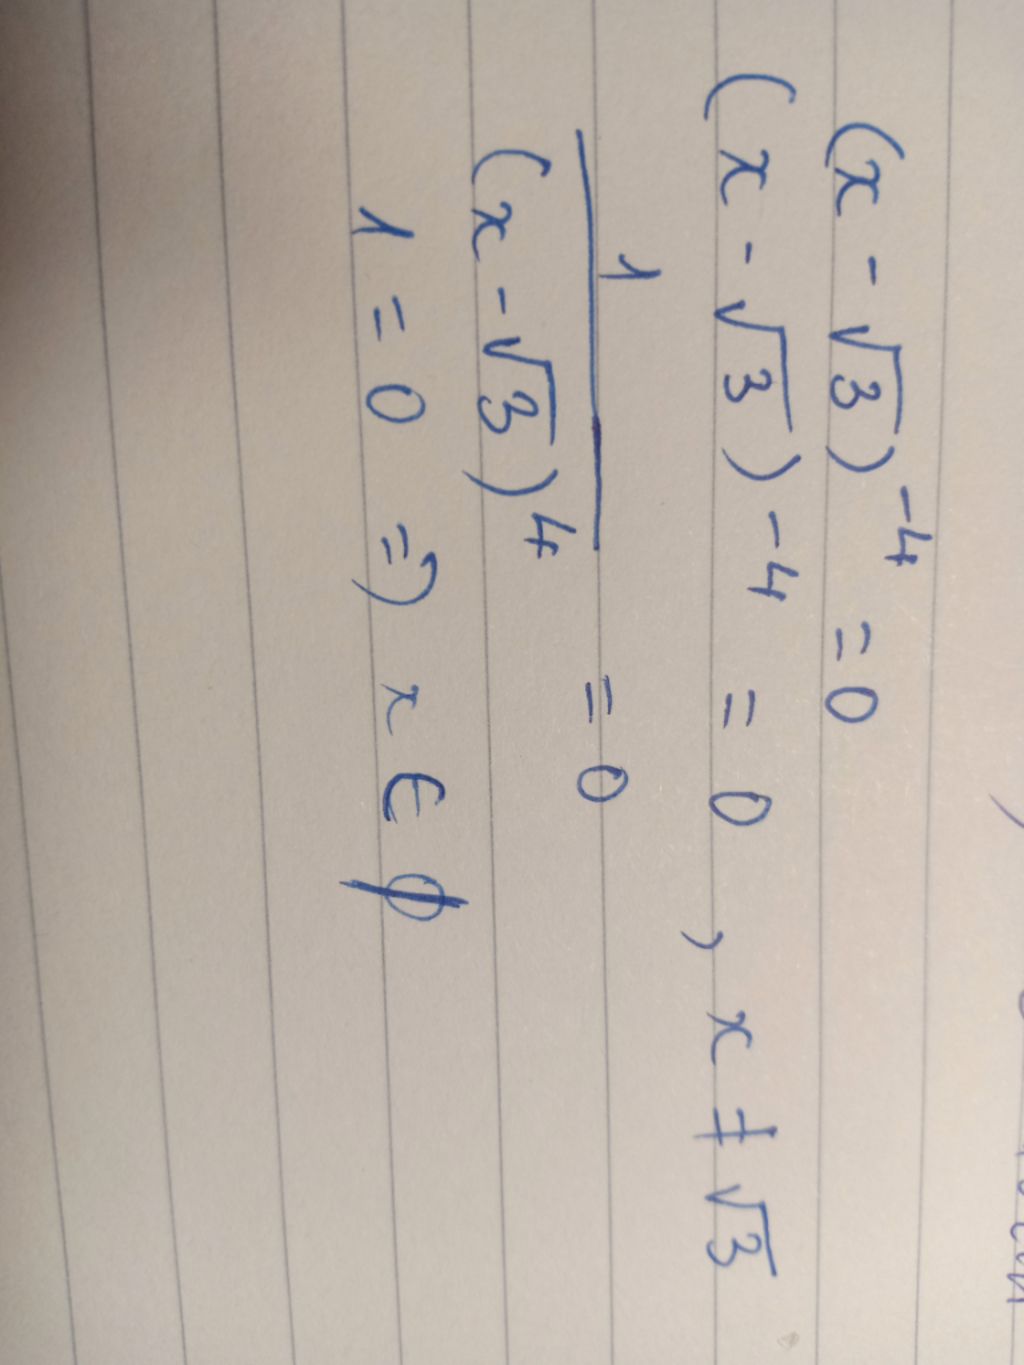 (x - √3)⁻⁴ = 0
(x - √3)⁻⁴ = 0 , x ≠ √3
1
(x - √3)⁴ = 0
1 = 0 => x ∈ ∅